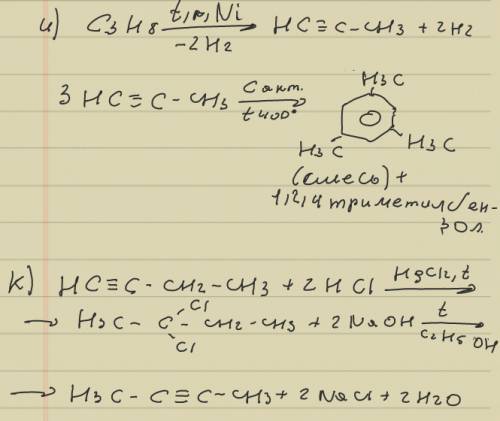 и) C3H8 t,p,Ni → -2H2 HC≡C-CH3 + 2H2
3 HC≡C-CH3 C акт. → t 400° H3C H3C H3C
(смесь) +
1,2,4 триметилбен-
зол.
к) HC≡C-CH2-CH3 + 2HCl HgCl2, t →
→ H3C-C(Cl)(Cl)-CH2-CH3 + 2NaOH t → C2H5OH
→ H3C-C≡C-CH3 + 2NaCl + 2H2O